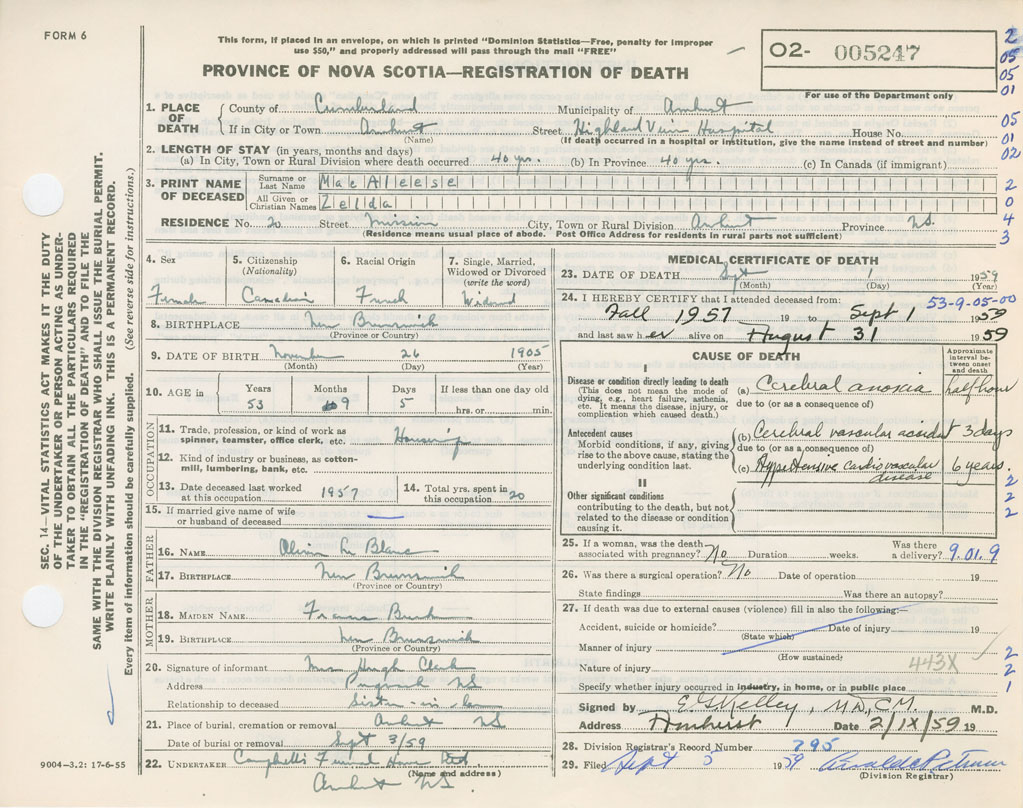 FORM 6
This form, if placed in an envelope, on which is printed "Dominion Statistics—Free, penalty for improper
use $50," and properly addressed will pass through the mail "FREE"
PROVINCE OF NOVA SCOTIA—REGISTRATION OF DEATH
O2- 005247
For use of the Department only
2
05
05
01
05
01
02
2
0
4
3
1. PLACE OF DEATH County of Cumberland Municipality of Amherst
If in City or Town Amherst Street Highland View Hospital House No.
(Name) (If death occurred in a hospital or institution, give the name instead of street and number)
2. LENGTH OF STAY (in years, months and days)
(a) In City, Town or Rural Division where death occurred 40 yrs. (b) In Province 40 yrs. (c) In Canada (if immigrant)
3. PRINT NAME OF DECEASED
Surname or Last Name MacAleese
All Given or Christian Names Zelda
RESIDENCE No. 20 Street Mission City, Town or Rural Division Amherst Province N.S.
(Residence means usual place of abode. Post Office Address for residents in rural parts not sufficient)
4. Sex Female
5. Citizenship (Nationality) Canadian
6. Racial Origin French
7. Single, Married, Widowed or Divorced (write the word) Widowed
8. BIRTHPLACE New Brunswick
(Province or Country)
9. DATE OF BIRTH November 26 1905
(Month) (Day) (Year)
10. AGE in Years 53 Months 9 Days 5 If less than one day old hrs. or min.
OCCUPATION
11. Trade, profession, or kind of work as
spinner, teamster, office clerk, etc. Housewife
12. Kind of industry or business, as cotton-
mill, lumbering, bank, etc.
13. Date deceased last worked
at this occupation 1957
14. Total yrs. spent in
this occupation 20
15. If married give name of wife
or husband of deceased —
FATHER
16. NAME Le Blanc
17. BIRTHPLACE New Brunswick
(Province or Country)
MOTHER
18. MAIDEN NAME
19. BIRTHPLACE New Brunswick
(Province or Country)
20. Signature of informant Mrs Hugh Clark
Address Pugwash NS
Relationship to deceased Sister-in-law
21. Place of burial, cremation or removal Amherst NS
Date of burial or removal Sept 3/59
22. UNDERTAKER Campbell's Funeral Home
(Name and address)
Amherst NS.
MEDICAL CERTIFICATE OF DEATH
23. DATE OF DEATH Sept 1 1959
(Month) (Day) (Year)
53-9-05-00
24. I HEREBY CERTIFY that I attended deceased from:
Fall 1957 19 to Sept 1 1959
and last saw her alive on August 31 1959
CAUSE OF DEATH
Approximate interval between onset and death
I
Disease or condition directly leading to death
(This does not mean the mode of
dying, e.g., heart failure, asthenia,
etc. It means the disease, injury, or
complication which caused death.)
(a) Cerebral anoxia half hour
due to (or as a consequence of)
Antecedent causes
Morbid conditions, if any, giving
rise to the above cause, stating the
underlying condition last.
(b) Cerebral vascular accident 3 days
due to (or as a consequence of)
(c) Hypertensive cardiovascular disease 6 years.
II
Other significant conditions
contributing to the death, but not
related to the disease or condition
causing it.
2
2
2
25. If a woman, was the death
associated with pregnancy? No Duration weeks. Was there
a delivery? 9.01.9
26. Was there a surgical operation? No Date of operation 19
State findings Was there an autopsy?
27. If death was due to external causes (violence) fill in also the following:—
Accident, suicide or homicide? Date of injury 19
(State which)
Manner of injury
(How sustained)
443X
Nature of injury
Specify whether injury occurred in industry, in home, or in public place
2
2
1
Signed by E. G. Kelley, M.D., C.M. M.D.
Address Amherst Date 2/IX/59 19
28. Division Registrar's Record Number 295
29. Filed Sept 5 1959
(Division Registrar)
SEC. 14—VITAL STATISTICS ACT MAKES IT THE DUTY
OF THE UNDERTAKER OR PERSON ACTING AS UNDER-
TAKER TO OBTAIN ALL THE PARTICULARS REQUIRED
IN THE "REGISTRATION OF DEATH" AND TO FILE THE
SAME WITH THE DIVISION REGISTRAR WHO SHALL ISSUE THE BURIAL PERMIT.
WRITE PLAINLY WITH UNFADING INK. THIS IS A PERMANENT RECORD.
Every item of information should be carefully supplied. (See reverse side for instructions.)
9004-3.2: 17-6-55